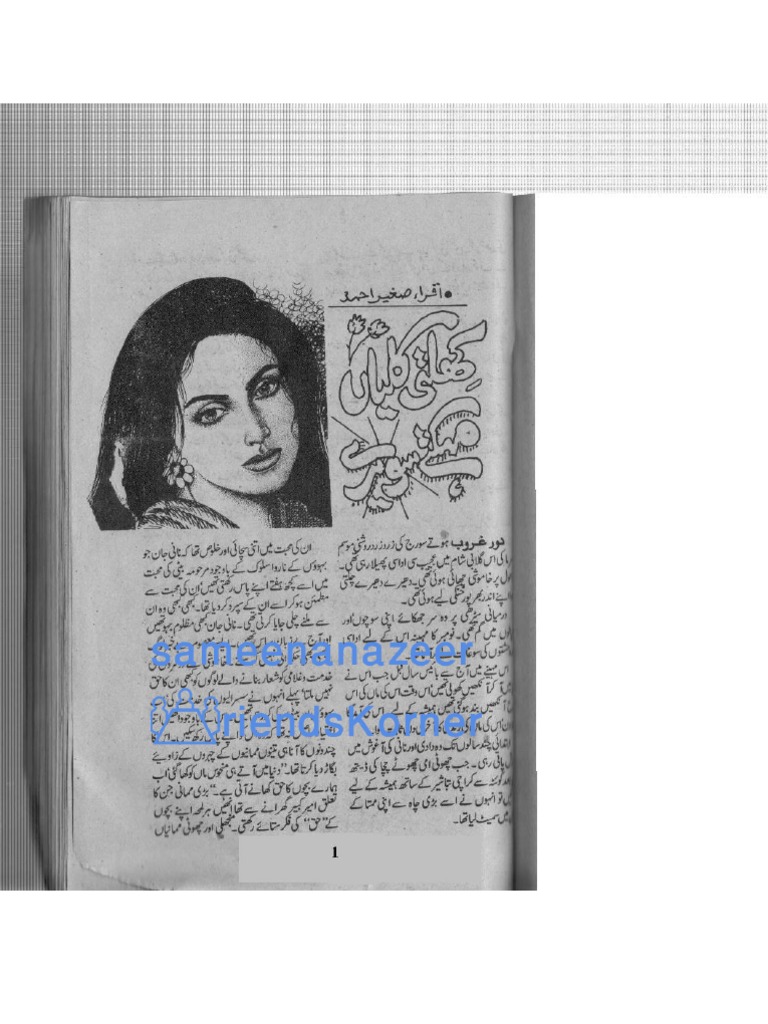 اقراء صغیر احمد
کِھلتی کلیاں
مہکے سویرے
دور غروب ہوتے سورج کی زرد زرد روشنی موسم
کی اس گلابی شام میں عجیب سی اداسی پھیلا رہی تھی۔
پر خاموشی چھائی ہوئی تھی۔ دھیرے دھیرے چلتی
اپنے اندر بھرپور خنکی لیے ہوئی تھی۔
درمیانی سیڑھی پر وہ سر جھکائے اپنی سوچوں اور
میں گم تھی۔ نومبر کا مہینہ اس کے لیے اداسی
کی سوغات
اس مہینے میں آج سے بائیس سال قبل جب اس نے
آ کر آنکھیں کھولی تھیں اس وقت اس کی ماں کی اس
آنکھیں بند ہو گئی تھیں ہمیشہ کے لیے۔ اس
اس کی ماں
ابتدائی چند سالوں تک وہ دادی اور نانی کی آغوش میں
پاتی رہی۔ جب چھوٹی امی چھوٹے چچا کی ڈیتھ
بعد کوئٹہ سے کراچی تباشیر کے ساتھ ہمیشہ کے لیے
تو انہوں نے اسے بڑی چاہ سے اپنی ممتا کے
میں سمیٹ لیا تھا۔
ان کی محبت میں اتنی سچائی اور خلوص تھا کہ نانی جان جو
بہوؤں کے ناروا سلوک کے باوجود مرحومہ بیٹی کی محبت
میں اسے کچھ ہفتے اپنے پاس رکھتی تھیں ان کی محبت سے
مطمئن ہو کر اسے ان کے سپرد کر دیا تھا۔ کبھی کبھی وہ ان
سے ملنے چلی جایا کرتی تھی۔ نانی جان کبھی مظلوم بہو تھیں
اور آج بے زبان ساس تھیں
خدمت و غلامی کو شعار بنانے والے لوگوں کو کبھی ان کا حق
نہیں ملتا پہلے انہوں نے سسرالیوں کی خدمت
چند دنوں کا آنا ہی تینوں ممانیوں کے چہروں کے زاویے
بگاڑ دیا کرتا تھا۔ "دنیا میں آتے ہی منحوس ماں کو کھا گئی اب
ہمارے بچوں کا حق کھانے آتی ہے۔" بڑی ممانی جن کا
تعلق امیر کبیر گھرانے سے تھا انھیں ہر لمحہ اپنے بچوں
کے "حق" کی فکر ستائے رکھتی۔ منجھلی اور چھوٹی ممانیاں
sameenanazeer
friendsKorner
1